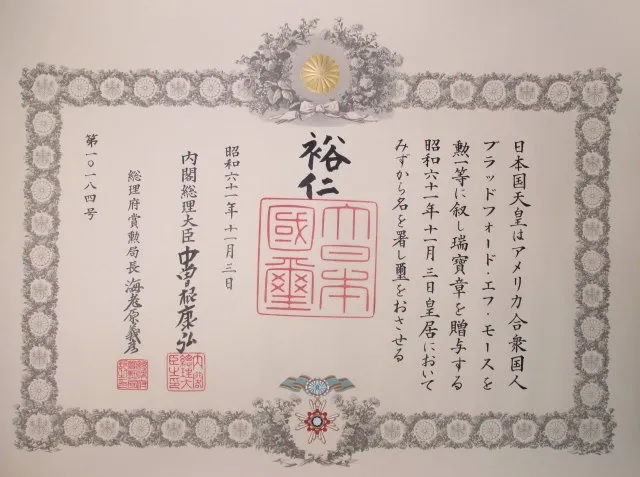 日本国天皇はアメリカ合衆国人
ブラッドフォード・エフ・モースを
勲一等に叙し瑞寶章を贈与する
昭和六十一年十一月三日皇居において
みずから名を署し璽をおさせる
裕仁
大日本
國璽
昭和六十一年十一月三日
内閣総理大臣 中曽根康弘
総理府賞勲局長 海老原義彦
第一〇一八四号